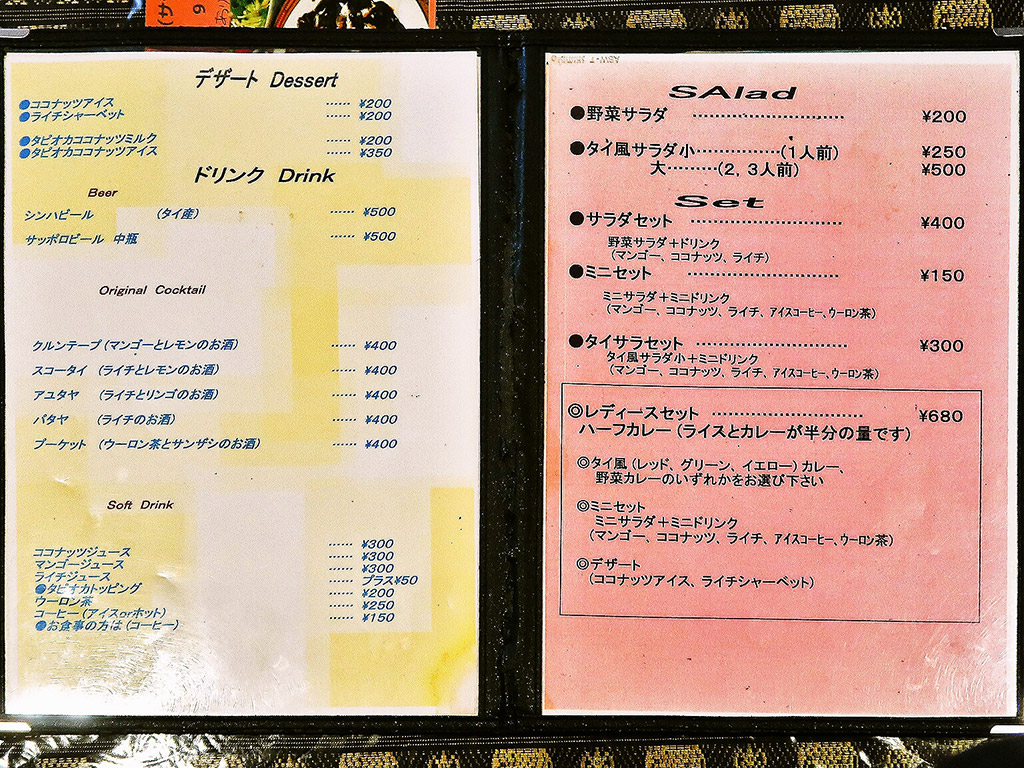 デザート Dessert
●ココナッツアイス ······ ¥200
●ライチシャーベット ······ ¥200
●タピオカココナッツミルク ······ ¥200
●タピオカココナッツアイス ······ ¥350
ドリンク Drink
Beer
シンハビール (タイ産) ······ ¥500
サッポロビール 中瓶 ······ ¥500
Original Cocktail
クルンテープ(マンゴーとレモンのお酒) ······ ¥400
スコータイ (ライチとレモンのお酒) ······ ¥400
アユタヤ (ライチとリンゴのお酒) ······ ¥400
パタヤ (ライチのお酒) ······ ¥400
プーケット (ウーロン茶とサンザシのお酒) ······ ¥400
Soft Drink
ココナッツジュース ······ ¥300
マンゴージュース ······ ¥300
ライチジュース ······ ¥300
●タピオカトッピング ······ プラス¥50
ウーロン茶 ······ ¥200
コーヒー(アイスorホット) ······ ¥250
●お食事の方は(コーヒー) ······ ¥150
SAlad
●野菜サラダ ······ ¥200
●タイ風サラダ小······(1人前) ¥250
大······(2, 3人前) ¥500
Set
●サラダセット ······ ¥400
野菜サラダ+ドリンク
(マンゴー、ココナッツ、ライチ)
●ミニセット ······ ¥150
ミニサラダ+ミニドリンク
(マンゴー、ココナッツ、ライチ、アイスコーヒー、ウーロン茶)
●タイサラセット ······ ¥300
タイ風サラダ小+ミニドリンク
(マンゴー、ココナッツ、ライチ、アイスコーヒー、ウーロン茶)
◎レディースセット ······ ¥680
ハーフカレー(ライスとカレーが半分の量です)
◎タイ風(レッド、グリーン、イエロー)カレー、
野菜カレーのいずれかをお選び下さい
◎ミニセット
ミニサラダ+ミニドリンク
(マンゴー、ココナッツ、ライチ、アイスコーヒー、ウーロン茶)
◎デザート
(ココナッツアイス、ライチシャーベット)